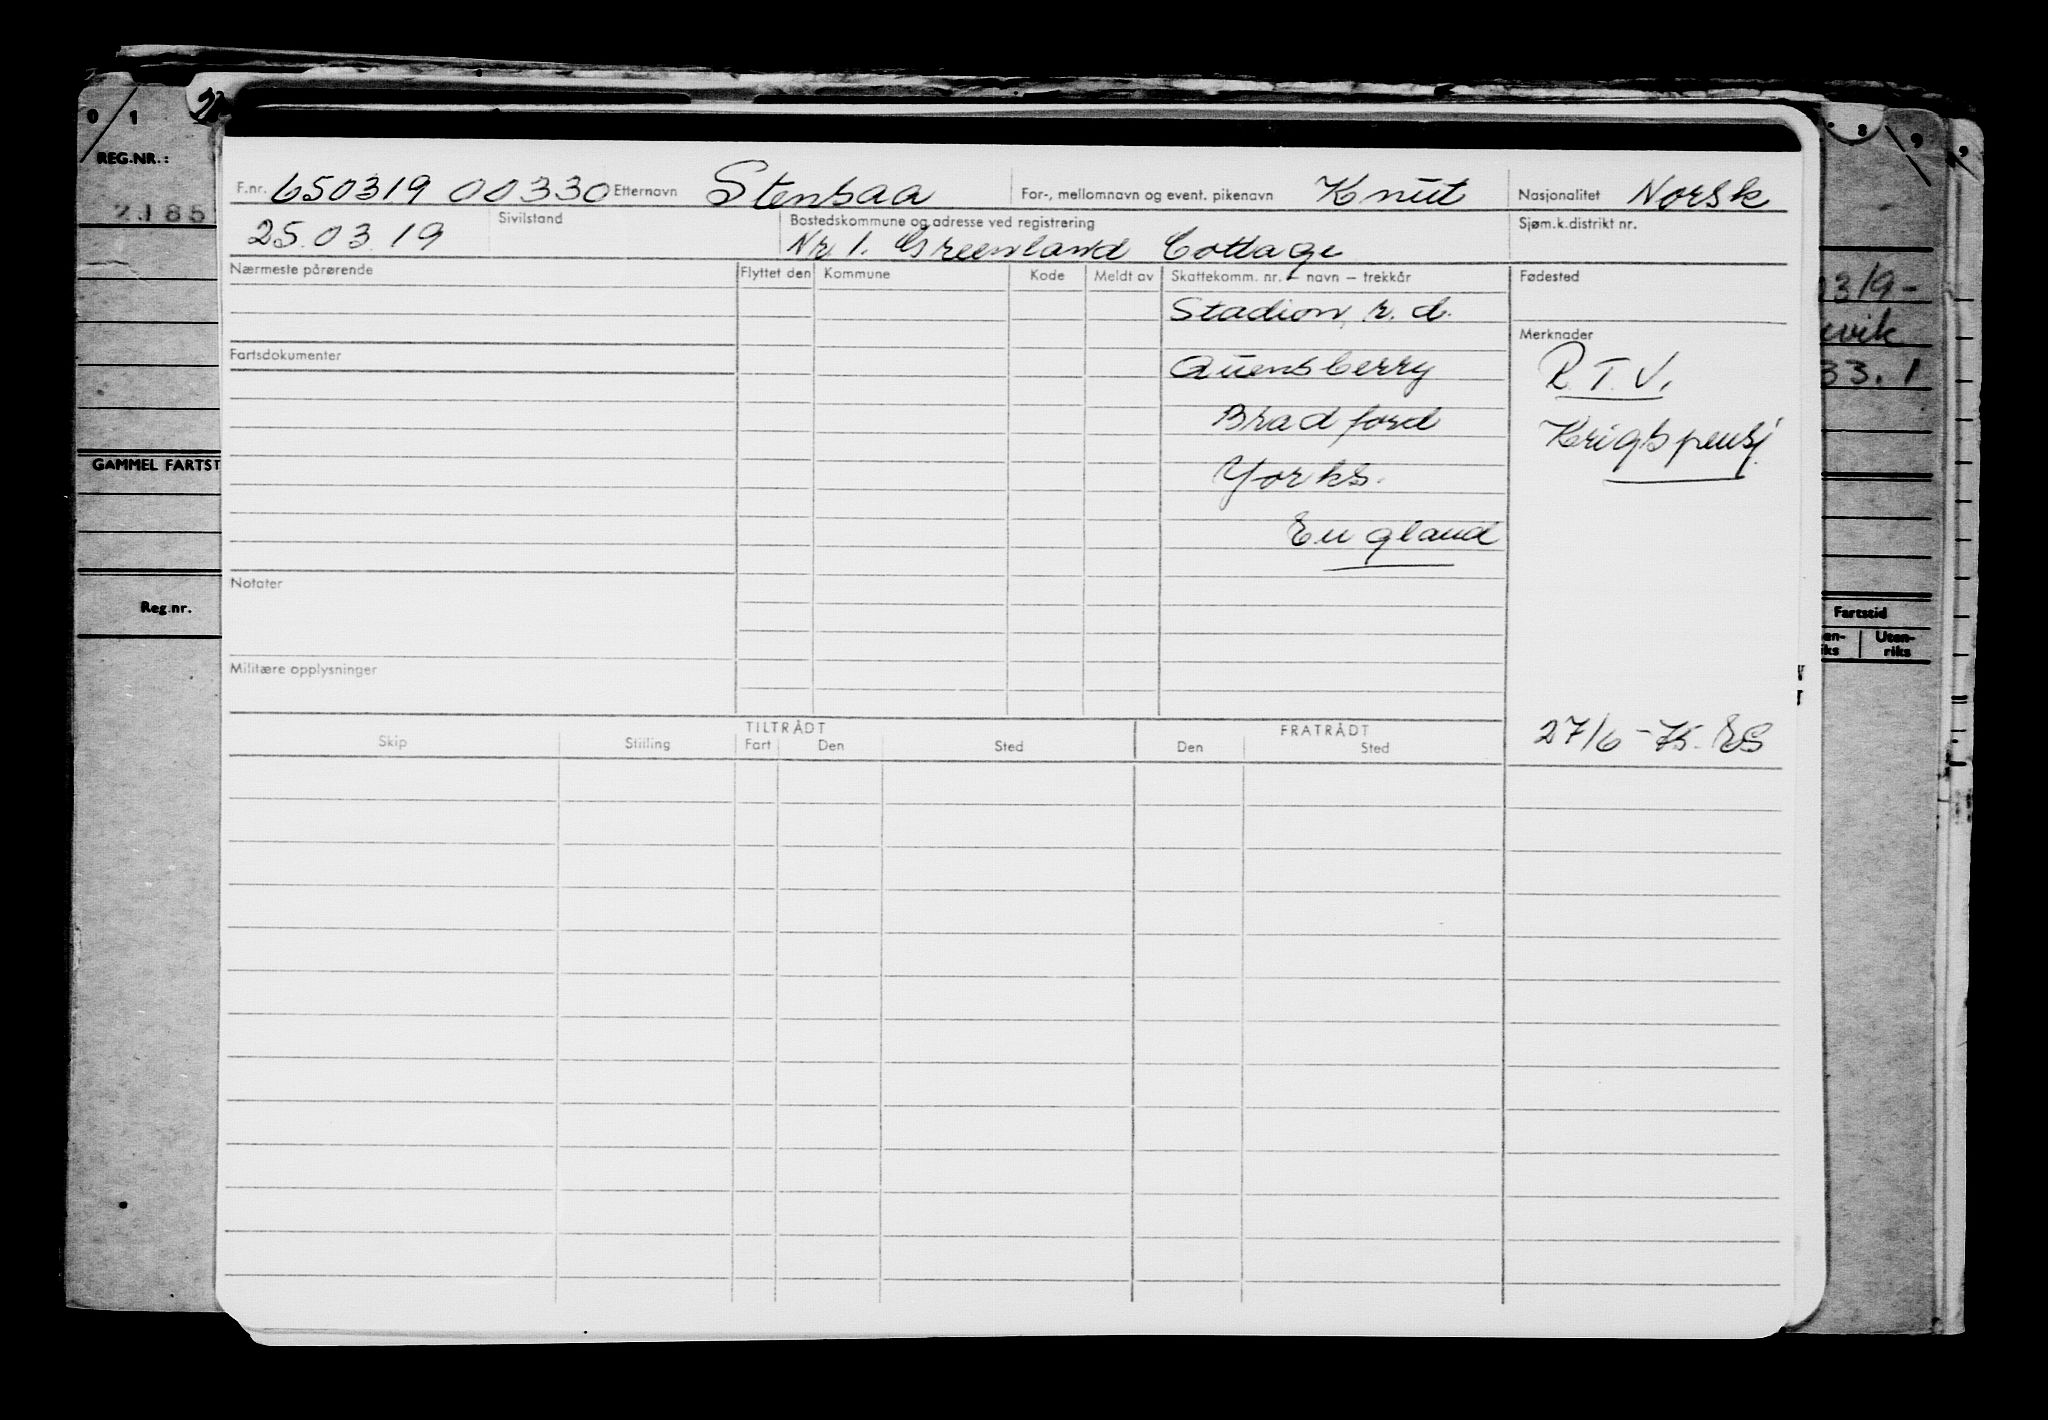 0 1
8 9
REG.NR.:
F.nr. 650319 00330 Etternavn Stensaa For-, mellomnavn og event. pikenavn Knut Nasjonalitet Norsk
25.03.19 Sivilstand Bostedskommune og adresse ved registrering Sjøm.k.distrikt nr.
Nr 1. Greenland Cottage
Nærmeste pårørende Flyttet den Kommune Kode Meldt av Skattekomm. nr. – navn – trekkår Fødested
Stadion, r. d.
Merknader
Fartsdokumenter
Quensberry R.T.V.
Bradford Krigspensj.
Yorks.
England
319-
vik
33.1
GAMMEL FARTST
Notater
Reg.nr. Fartstid
Uten-
riks
Militære opplysninger
TILTRÅDT FRATRÅDT
Skip Stilling Fart Den Sted Den Sted
27/6-75. ES